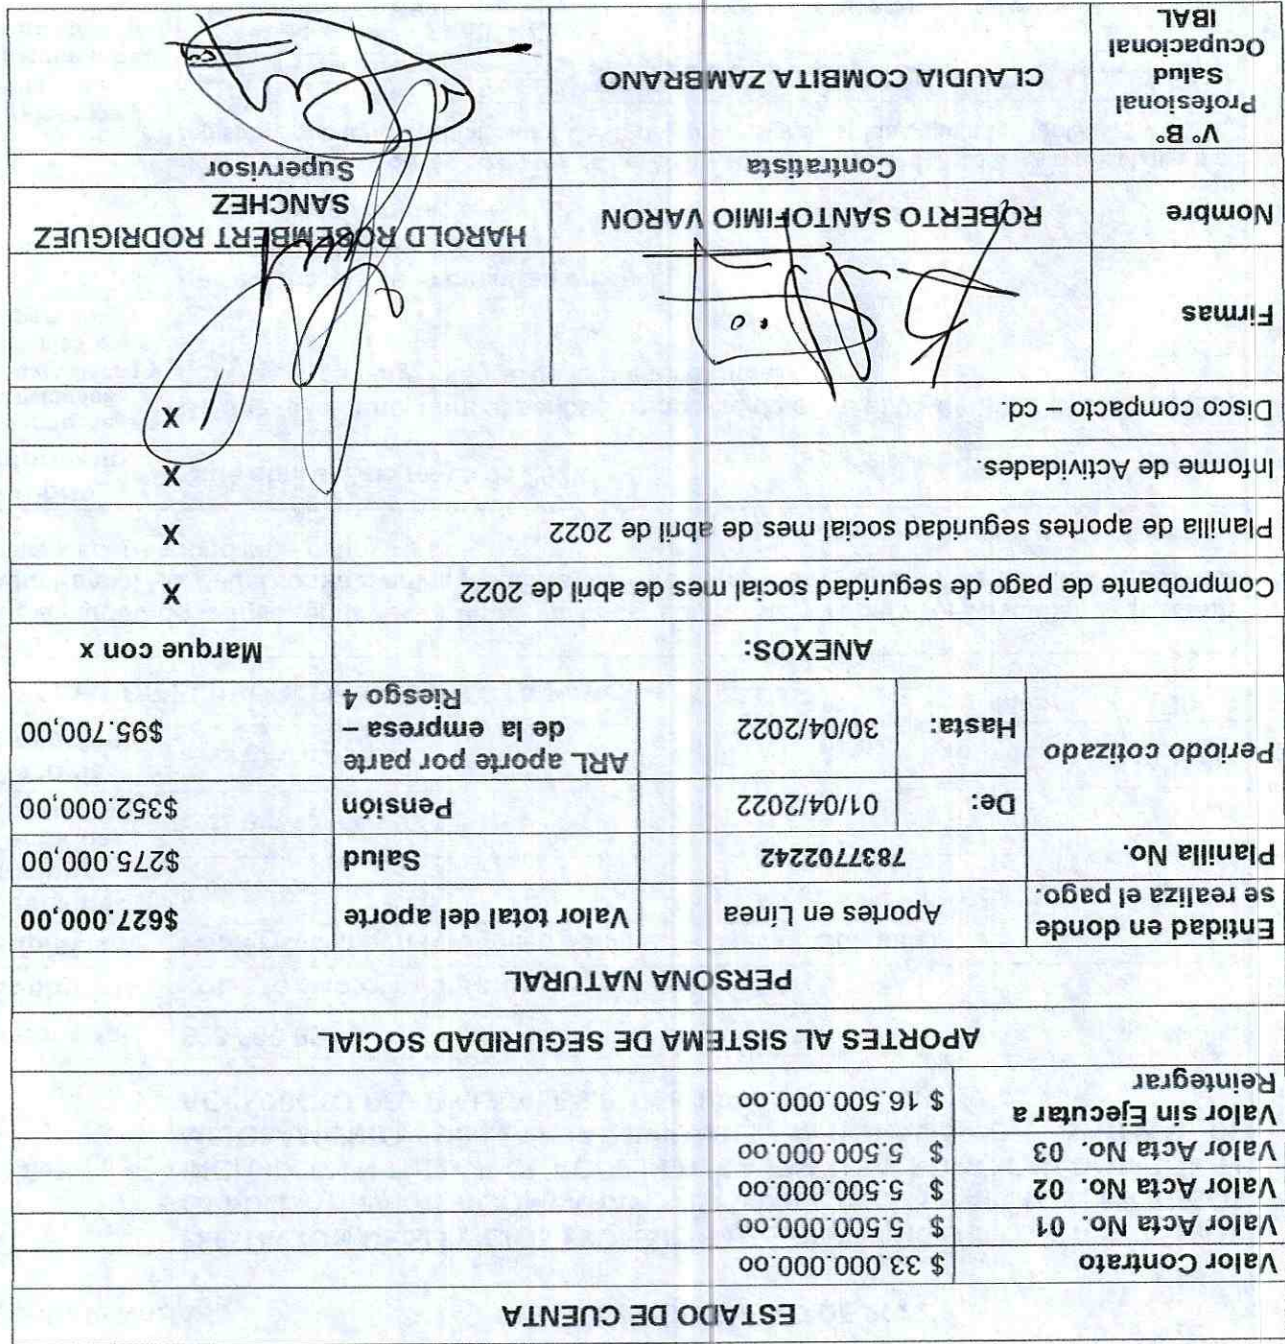 ESTADO DE CUENTA
Valor Contrato $ 33.000.000.oo
Valor Acta No. 01 $ 5.500.000.oo
Valor Acta No. 02 $ 5.500.000.oo
Valor Acta No. 03 $ 5.500.000.oo
Valor sin Ejecutar a
Reintegrar $ 16.500.000.oo
APORTES AL SISTEMA DE SEGURIDAD SOCIAL
PERSONA NATURAL
Entidad en donde
se realiza el pago Aportes en Línea Valor total del aporte $627.000,00
Planilla No. 7837702242 Salud $275.000,00
Periodo cotizado De: 01/04/2022 Pensión $352.000,00
Hasta: 30/04/2022 ARL aporte por parte
de la empresa –
Riesgo 4 $95.700,00
ANEXOS: Marque con x
Comprobante de pago de seguridad social mes de abril de 2022 X
Planilla de aportes seguridad social mes de abril de 2022 X
Informe de Actividades. X
Disco compacto – cd. X
Firmas
Nombre ROBERTO SANTOFIMIO VARON HAROLD ROBEMBERT RODRIGUEZ
SANCHEZ
Contratista Supervisor
V° B°
Profesional
Salud
Ocupacional
IBAL CLAUDIA COMBITA ZAMBRANO